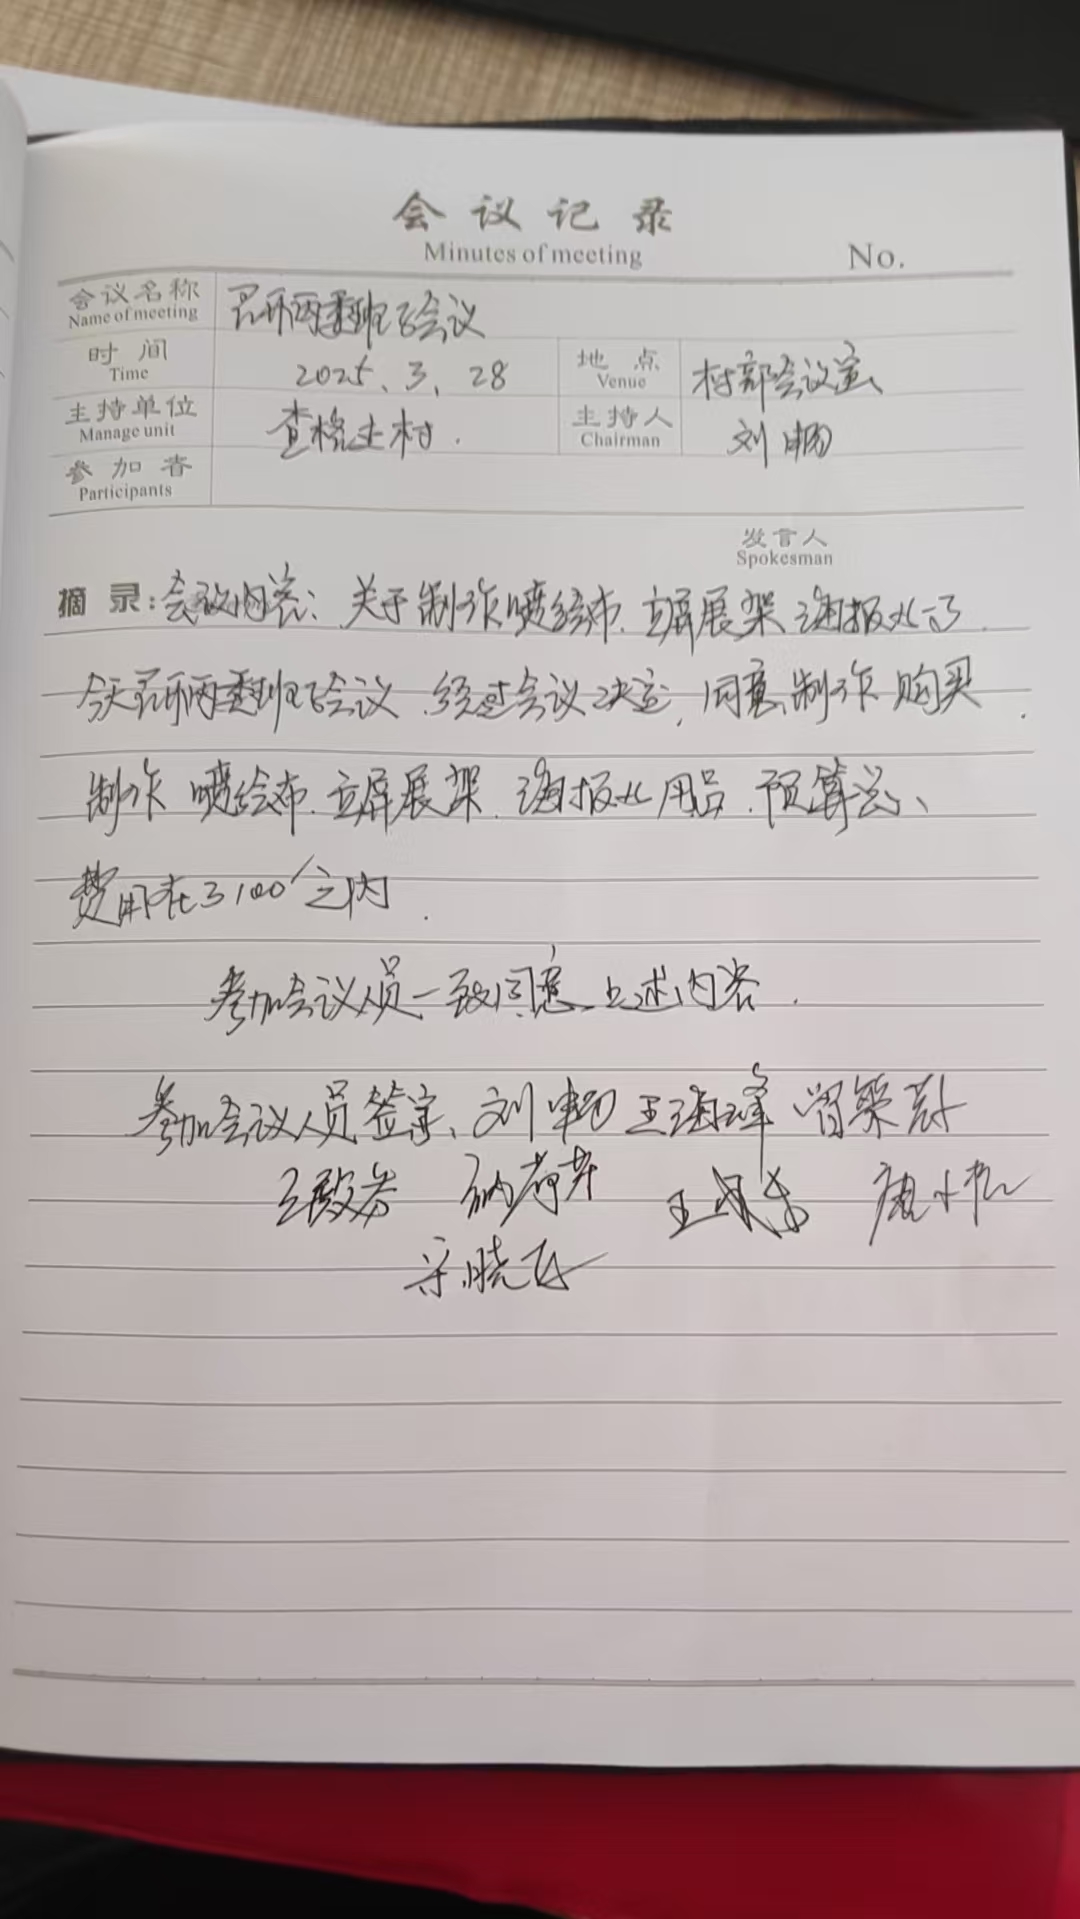 会议记录
Minutes of meeting
No.
会议名称 召开两委班子会议
Name of meeting
时间 2025、3、28 地点 村部会议室
Time Venue
主持单位 查格土村. 主持人 刘
Manage unit Chairman
参加者
Participants
发言人
Spokesman
摘录:会议内容:关于制作喷绘布.立屏展架 海报
今天召开两委班子会议 经过会议决定,同意制作购买
制作 喷绘布.立屏展架.海报 用品.预算总、
费用在3100之内.
参加会议人员一致同意上述内容.
参加会议人员签字、刘 王海峰
王